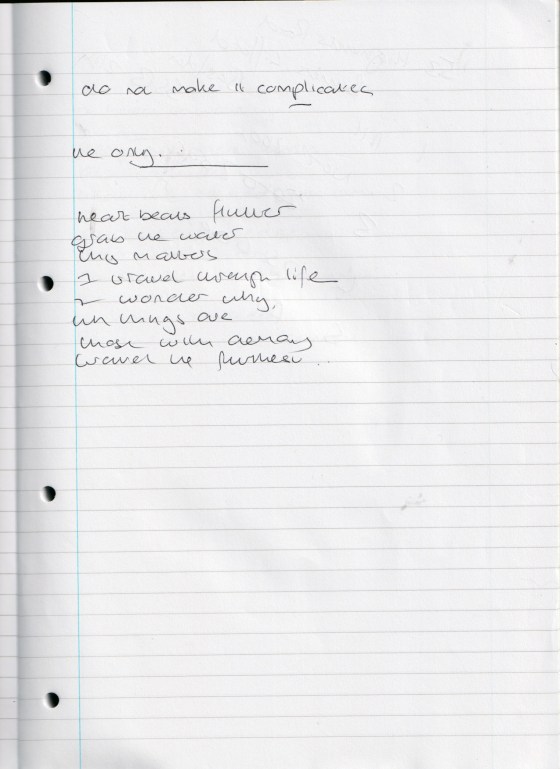 do not make it complicated
the only.
heart beats flutter
grab the water
I travel through life
I wonder why,
things are
those with
travel the furthest...